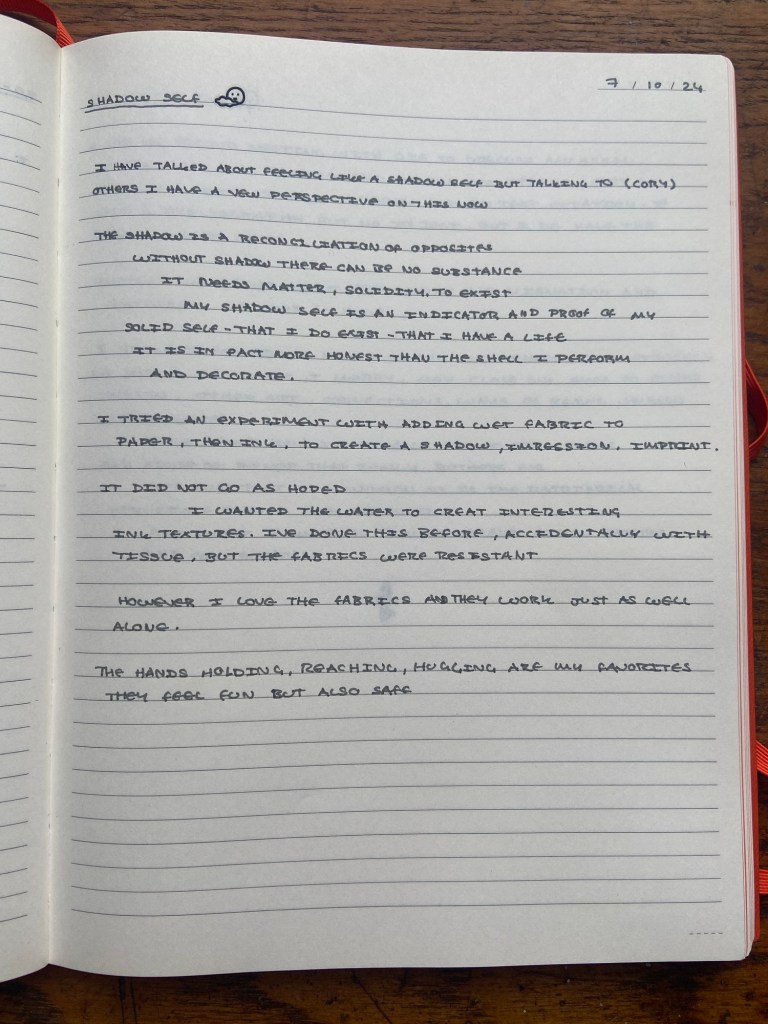 7 / 10 / 24
SHADOW SELF
I HAVE TALKED ABOUT FEELING LIKE A SHADOW SELF BUT TALKING TO (CORY)
OTHERS I HAVE A NEW PERSPECTIVE ON THIS NOW
THE SHADOW IS A RECONCILIATION OF OPPOSITES
WITHOUT SHADOW THERE CAN BE NO SUBSTANCE
IT NEEDS MATTER, SOLIDITY, TO EXIST
MY SHADOW SELF IS AN INDICATOR AND PROOF OF MY
SOLID SELF - THAT I DO EXIST - THAT I HAVE A LIFE
IT IS IN FACT MORE HONEST THAN THE SHELL I PERFORM
AND DECORATE.
I TRIED AN EXPERIMENT WITH ADDING WET FABRIC TO
PAPER, THEN INK, TO CREATE A SHADOW, IMRESSION, IMPRINT.
IT DID NOT GO AS HOPED
I WANTED THE WATER TO CREAT INTERESTING
INK TEXTURES. IVE DONE THIS BEFORE, ACCEDENTALLY WITH
TISSUE, BUT THE FABRICS WERE RESISTANT
HOWEVER I LOVE THE FABRICS AND THEY WORK JUST AS WELL
ALONE.
THE HANDS HOLDING, REACHING, HUGGING ARE MY FAVORITES
THEY FEEL FUN BUT ALSO SAFE